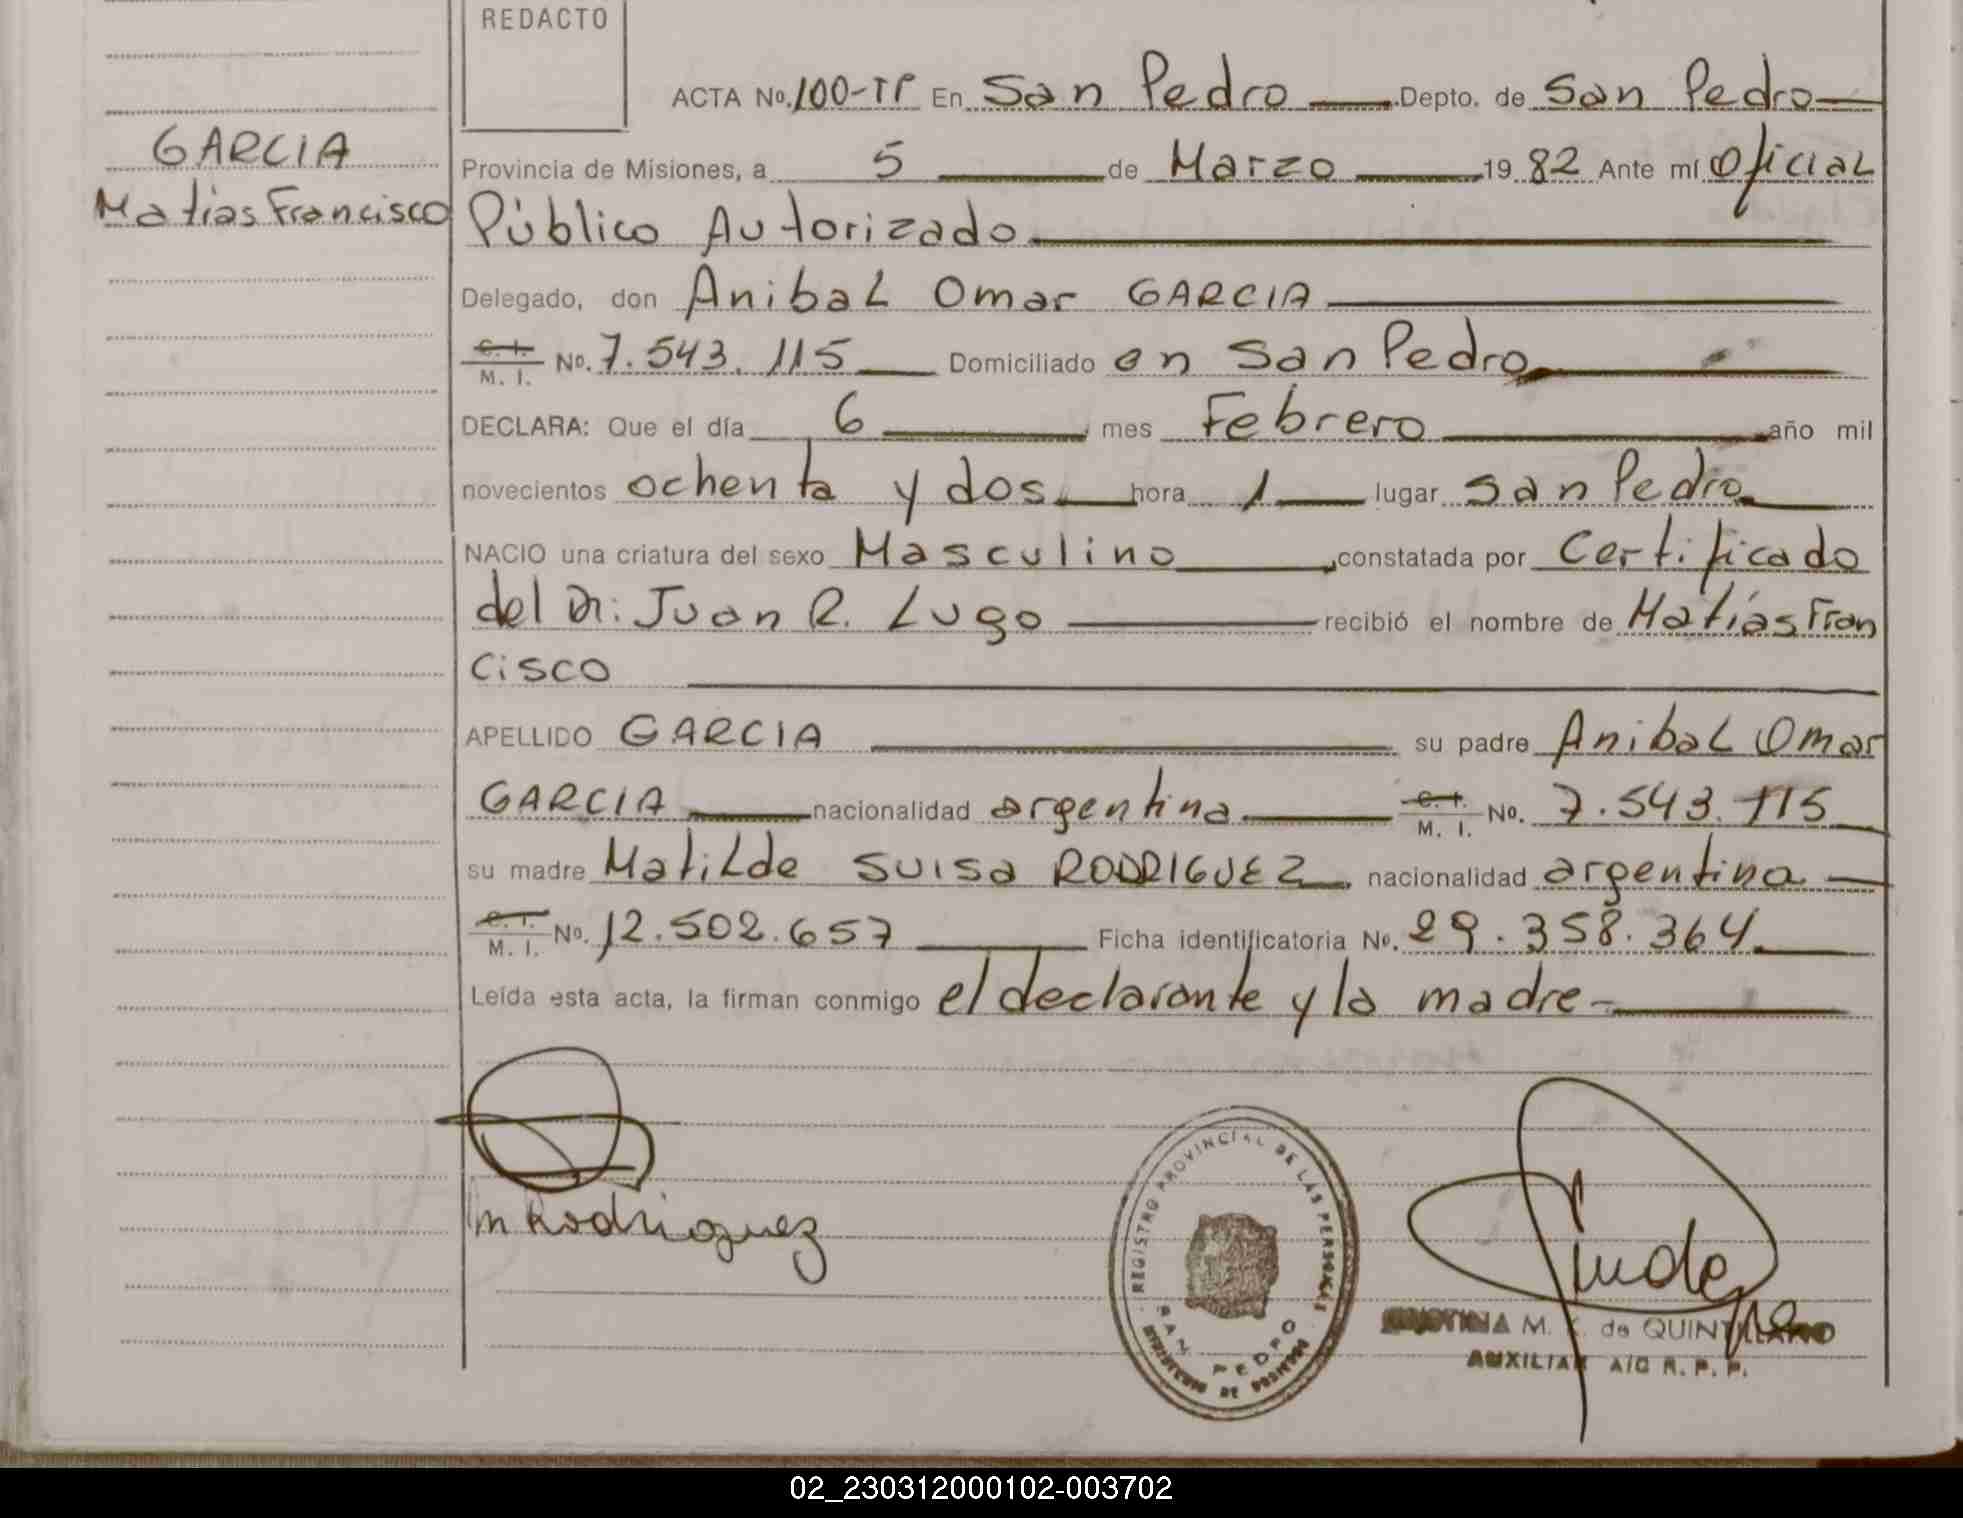 REDACTO
ACTA No. 100-TP En San Pedro Depto. de San Pedro
GARCIA
Matias Francisco
Provincia de Misiones, a 5 de Marzo 19 82 Ante mí Oficial
Público Autorizado
Delegado, don Anibal Omar GARCIA
C. I. M. I. No. 7.543.115 Domiciliado en San Pedro
DECLARA: Que el día 6 mes Febrero año mil
novecientos ochenta y dos hora 1 lugar San Pedro
NACIO una criatura del sexo Masculino constatada por Certificado
del Dr: Juan R. Lugo recibió el nombre de Matías Fran
cisco
APELLIDO GARCIA su padre Anibal Omar
GARCIA nacionalidad argentina C. I. M. I. No. 7.543.115
su madre Matilde SUISA RODRIGUEZ nacionalidad argentina
C. I. M. I. No. 12.502.657 Ficha identificatoria No. 29.358.364
Leída esta acta, la firman conmigo el declarante y la madre-
M Rodriguez
REGISTRO PROVINCIAL DE LAS PERSONAS
SAN PEDRO
CRISTINA M. K. de QUINTILLANO
AUXILIAR A/C R. P. P.
02_230312000102-003702